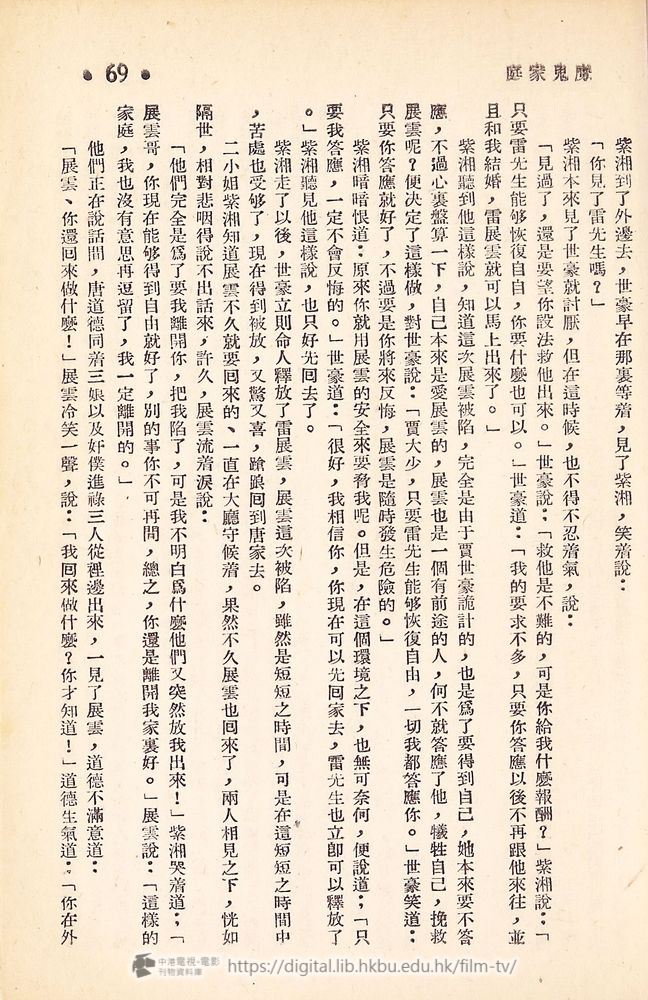 魔鬼家庭
• 69 •
紫湘到了外邊去，世豪早在那裏等着，見了紫湘，笑着說：
「你見了雷先生嗎？」
紫湘本來見了世豪就討厭，但在這時候，也不得不忍着氣，說：
「見過了，還是要望你設法救他出來。」世豪說：「救他是不難的，可是你給我什麼報酬？」紫湘說：「
只要雷先生能够恢復自自，你要什麼也可以。」世豪道：「我的要求不多，只要你答應以後不再跟他來往，並
且和我結婚，雷展雲就可以馬上出來了。」
紫湘聽到他這樣說，知道這次展雲被陷，完全是由于賈世豪詭計的，也是爲了要得到自己，她本來要不答
應，不過心裏盤算一下，自己本來是愛展雲的，展雲也是一個有前途的人，何不就答應了他，犧牲自己，挽救
展雲呢？便决定了這樣做，對世豪說：「賈大少，只要雷先生能够恢復自由，一切我都答應你。」世豪笑道：
只要你答應就好了，不過要是你將來反悔，展雲是隨時發生危險的。」
紫湘暗暗恨道：原來你就用展雲的安全來要脅我呢。但是，在這個環境之下，也無可奈何，便說道；「只
要我答應，一定不會反悔的。」世豪道：「很好，我相信你，你現在可以先回家去，雷先生也立卽可以釋放了
。」紫湘聽見他這樣說，也只好先回去了。
紫湘走了以後，世豪立則命人釋放了雷展雲，展雲這次被陷，雖然是短短之時間，可是在這短短之時間中
，苦處也受够了，現在得到被放，又驚又喜，蹌踉回到唐家去。
二小姐紫湘知道展雲不久就要回來的、一直在大廳守候着，果然不久展雲也回來了，兩人相見之下，恍如
隔世，相對悲咽得說不出話來，許久，展雲流着淚說：
「他們完全是爲了要我離開你，把我陷了，可是我不明白爲什麼他們又突然放我出來！」紫湘哭着道；「
展雲哥，你現在能够得到自由就好了，別的事你不可再問，總之，你還是離開我家裏好。」展雲說：「這樣的
家庭，我也沒有意思再逗留了，我一定離開的。」
他們正在說話間，唐道德同着三娘以及奸僕進祿三人從裡邊出來，一見了展雲，道德不滿意道：
「展雲、你還回來做什麼！」展雲冷笑一聲，說：「我回來做什麼？你才知道！」道德生氣道：「你在外
中港電視-電影
刊物資料庫
https://digital.lib.hkbu.edu.hk/film-tv/